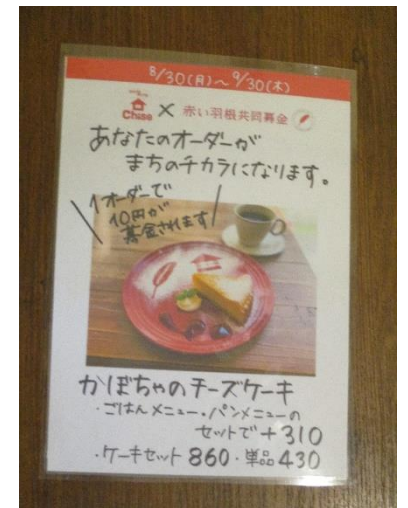 8/30(月)～9/30(木)
Chise × 赤い羽根共同募金
あなたのオーダーが
まちのチカラになります。
1オーダーで
10円が
募金されます
かぼちゃのチーズケーキ
・ごはんメニュー・パンメニューの
セットで+310
・ケーキセット 860・単品430